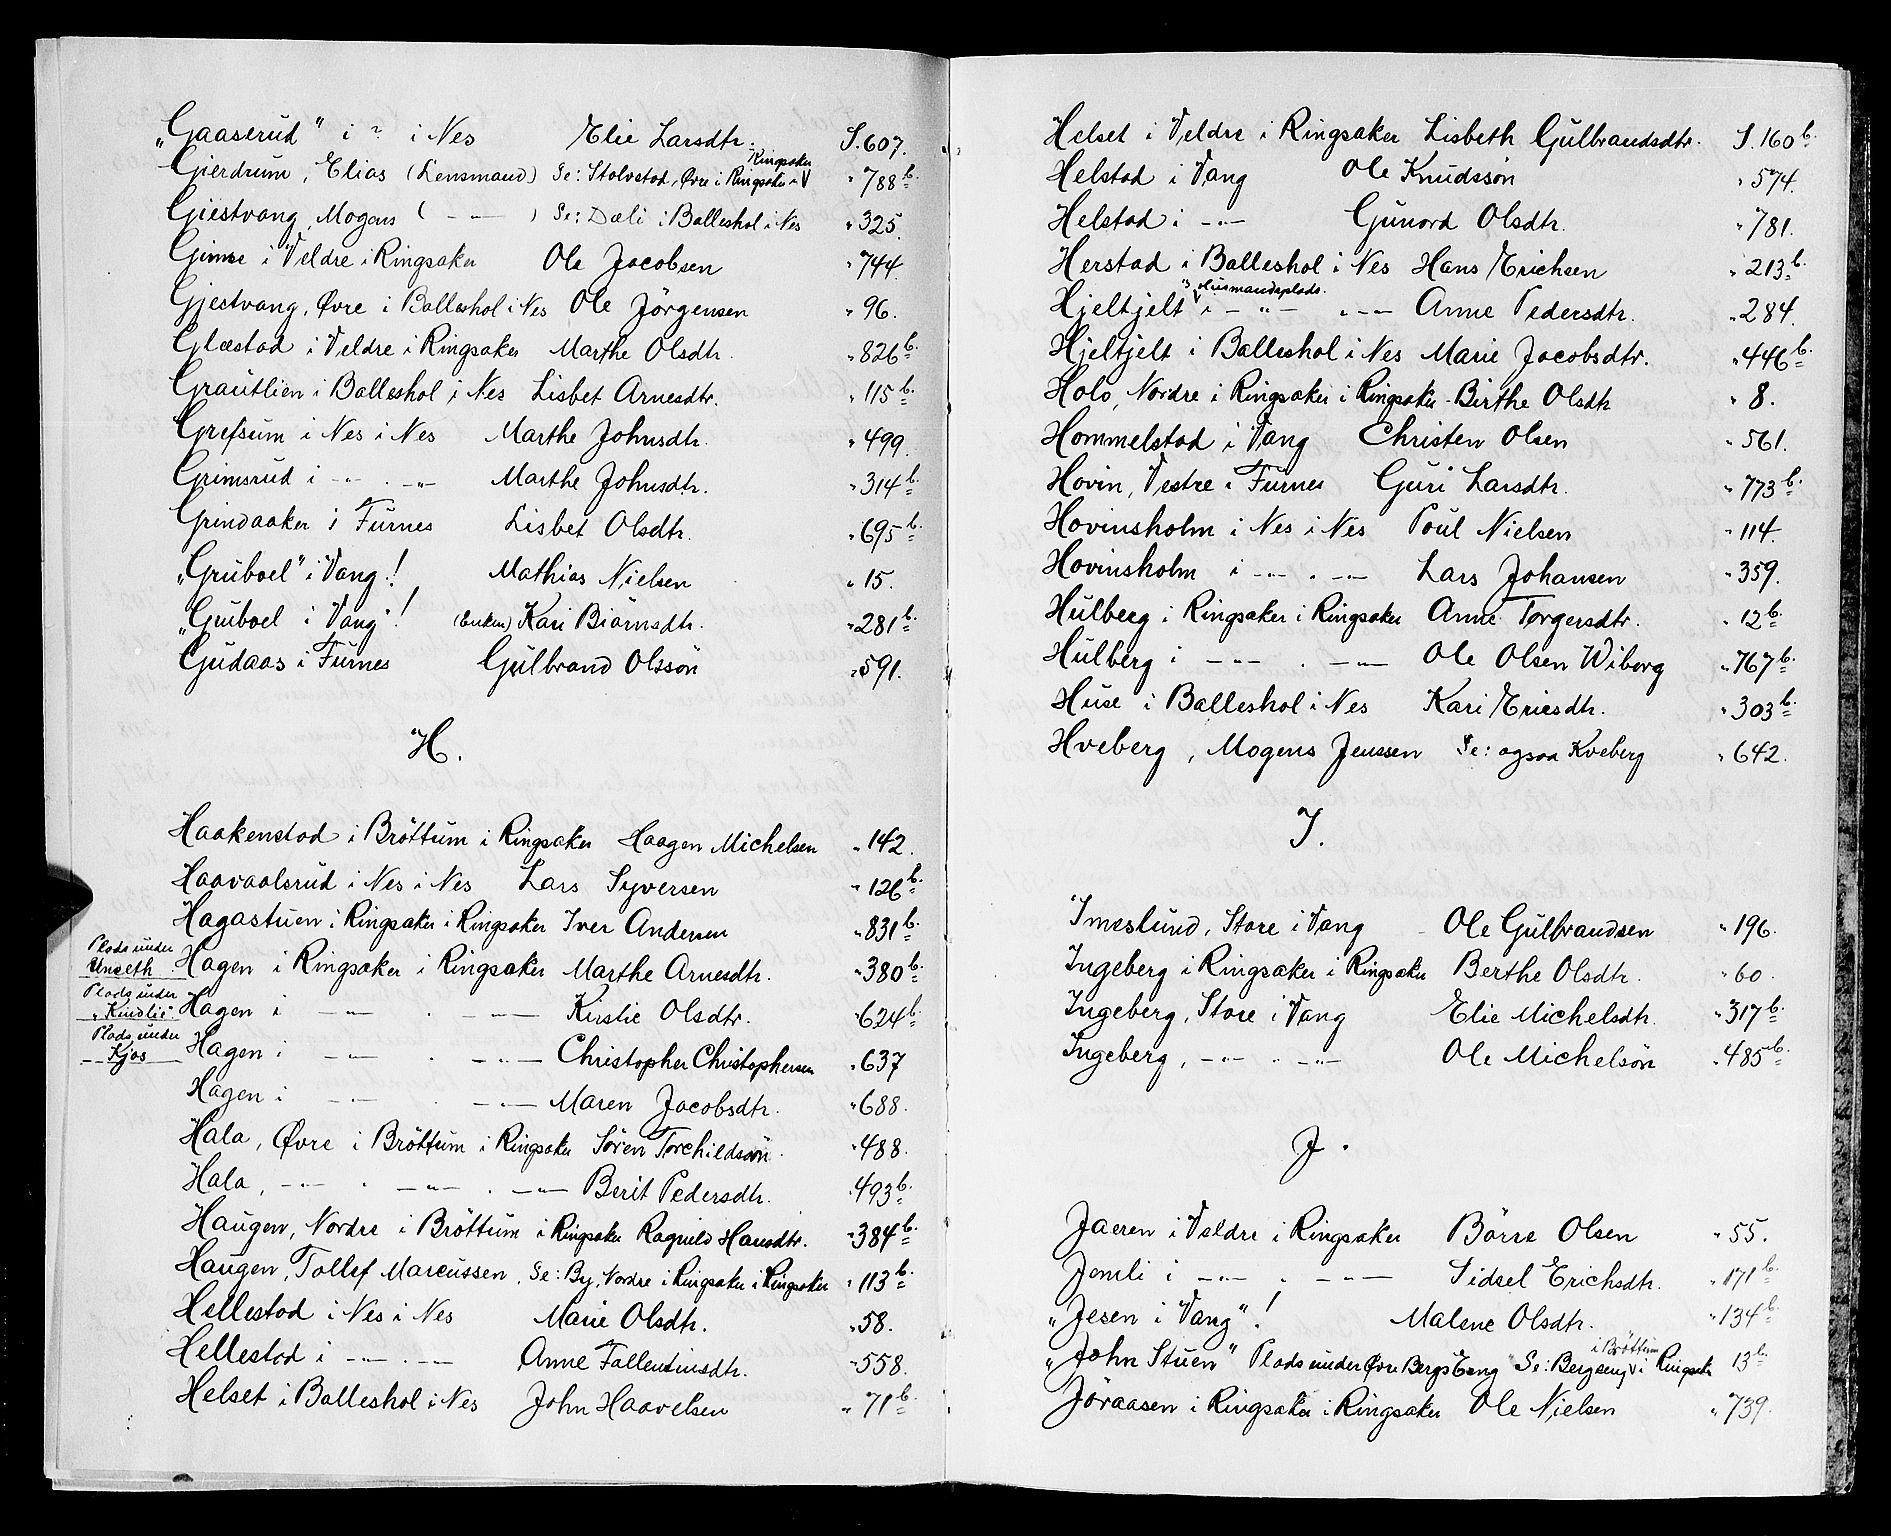 „Gaaserud" i ? i Nes Elie Larsdtr. S. 607.
Gierdrum, Elias (Lensmand) Se: Stolvstad, Øvre i Ringsaker i Ringsaker „ 788 b.
Giestvang, Mogens ( — „ — ) Se: Dæli i Balleshol i Nes „ 325.
Gimse i Veldre i Ringsaker Ole Jacobsen „ 744.
Gjestvang, Øvre i Balleshol i Nes Ole Jörgensen „ 96.
Glæstad i Veldre i Ringsaker Marthe Olsdtr. „ 826 b.
Grautlien i Balleshol i Nes Lisbet Arnesdtr. „ 115 b.
Grefsum i Nes i Nes Marthe Johnsdtr. „ 499.
Grimsrud i — „ — . — „ — Marthe Johnsdtr. „ 314 b.
Grindaaker i Furnes Lisbet Olsdtr. „ 695 b.
„Gruboel" i Vang! Mathias Nielsen „ 15.
„Gruboel i Vang"! (Enken) Kari Biörnsdtr. „ 281 b.
Gudaas i Furnes Gulbrand Olssön „ 591.
H.
Haakenstad i Bröttum i Ringsaker Haagen Michelsen „ 142.
Haavaalsrud i Nes i Nes Lars Syversen „ 126 b.
Hagastuen i Ringsaker i Ringsaker Iver Andersen „ 831 b.
Plads under
Unseth Hagen i Ringsaker i Ringsaker Marthe Arnesdtr. „ 380 b.
Plads under
„Kindlie" Hagen i — „ — . — „ — Kirstie Olsdtr. „ 624 b.
Plads under
Kjos Hagen i — „ — . — „ — Christopher Christophersen „ 637
Hagen i — „ — . — „ — Maren Jacobsdtr. „ 688.
Hala, Øvre i Bröttum i Ringsaker Sören Torchildsön „ 488.
Hala, — „ — . — „ — . — „ — Berit Pedersdtr. „ 493 b.
Haugen, Nordre i Bröttum i Ringsaker Ragnild Hansdtr. „ 384 b.
Haugen, Tollef Marcussen, Se: By, Nordre i Ringsaker i Ringsaker „ 113 b.
Hellestad i Nes i Nes Marie Olsdtr. „ 58.
Hellestad i — „ — . — „ — Anne Fallentinsdtr. „ 558.
Helset i Balleshol i Nes John Haavelsen „ 71 b.
Helset i Veldre i Ringsaker Lisbeth Gulbrandsdtr. S. 160 b.
Helstad i Vang Ole Knudssön „ 574.
Helstad i — „ — Gunord Olsdtr. „ 781.
Herstad i Balleshol i Nes Hans Erichsen „ 213 b.
Husmandsplads.
Hjeltjelt i — „ — . — „ — Anne Pedersdtr. „ 284.
Hjeltjelt i Balleshol i Nes Marie Jacobsdtr. „ 446 b.
Holo, Nordre i Ringsaker i Ringsaker Birthe Olsdtr „ 8.
Hommelstad i Vang Christen Olsen „ 561.
Hovin, Vestre i Furnes Guri Larsdtr. „ 773 b.
Hovinsholm i Nes i Nes Poul Nielsen „ 114.
Hovinsholm i — „ — . — „ — Lars Johansen „ 359.
Hulberg i Ringsaker i Ringsaker Anne Torgersdtr. „ 12 b.
Hulberg i — „ — . — „ — Ole Olsen Wiborg „ 767 b.
Huse i Balleshol i Nes Kari Ericsdtr. „ 303 b.
Hveberg, Mogens Jenssen Se: ogsaa Kveberg „ 642.
I.
Imeslund, Store i Vang Ole Gulbrandsen „ 196.
Ingeberg i Ringsaker i Ringsaker Berthe Olsdtr. „ 60.
Ingeberg, Store i Vang Elie Michelsdtr. „ 317 b.
Ingeberg, — „ — . — „ — Ole Michelsön „ 485 b.
J.
Jaeren i Veldre i Ringsaker Börre Olsen „ 55.
Jemli i — „ — . — „ — Sidsel Erichsdtr. „ 171 b.
„Jesen i Vang"! Malene Olsdtr. „ 134 b.
„John Stuen" Plads under Øvre Bergs Eng" Se: Bergseng i Bröttum i Ringsaker 13 b.
Jöraasen i Ringsaker i Ringsaker Ole Nielsen „ 739.